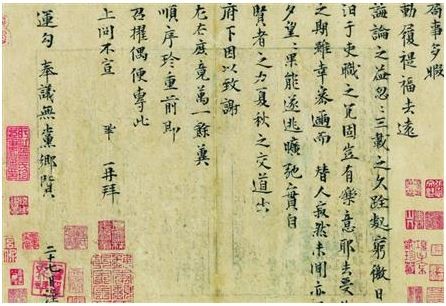 局事多暇
動履禔福去遠
誨論之益忽〻三載之久跧處窮徼日
汩于吏職之冗固豈有樂意耶去受
之期雖幸密邇而替人寂然未聞亦
夕望〻果能遂逃曠弛實自
賢者之力夏秋之交道出
府下因以致謝
左右庶竟萬一餘冀
順序珍重前即
召擢偶便專此
上問不宣 鞏再拜
運勾奉議無黨鄉賢
二十七日謹